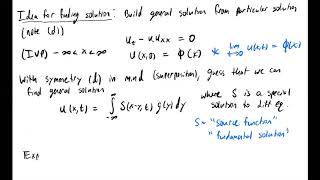 Idea for finding solution: Build general solution from particular solution
(note (d))
u_t - k u_xx = 0
(IVP) -∞ < x < ∞
u(x,0) = φ(x) * lim t→0 u(x,t) = φ(x)
With symmetry (d) in mind (superposition), guess that we can
find general solution
u(x,t) = ∫_{-∞}^{∞} S(x-y,t) g(y) dy
where S is a special
solution to diff eq.
S = "source function"
"fundamental solution"